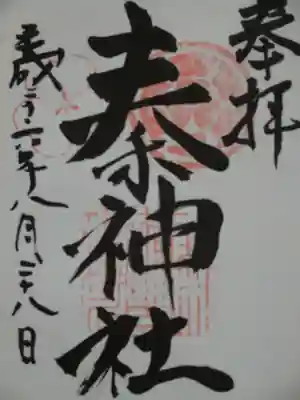 奉拝
秦神社
平成 年八月二十八日